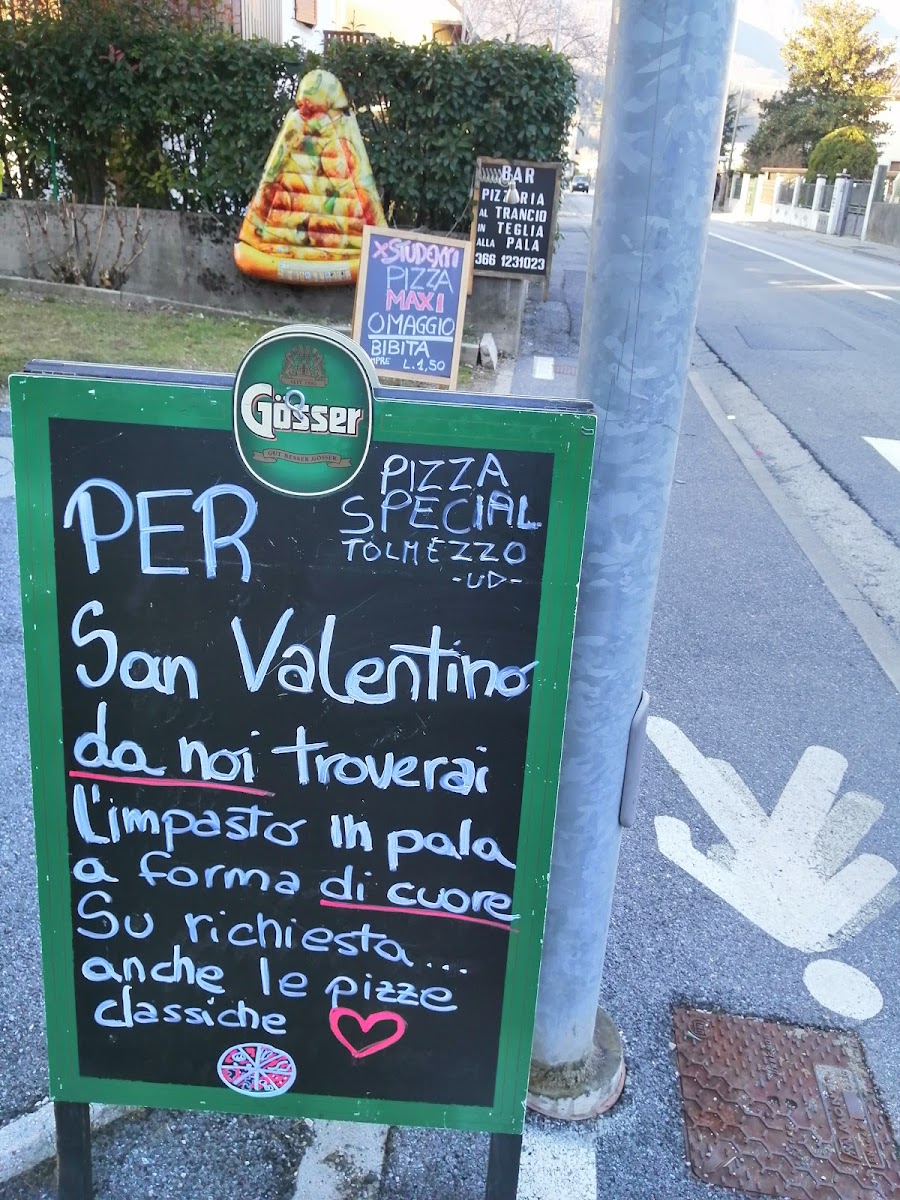 BAR
PIZZERIA
AL TRANCIO
IN TEGLIA
ALLA PALA
366 1231023
XSTUDENTI
PIZZA
MAXI
OMAGGIO
BIBITA
L.1,50
Gösser
GUT BESSER GÖSSER
PIZZA
SPECIAL
TOLMEZZO
-UD-
PER
San Valentino
da noi troverai
l'impasto in pala
a forma di cuore
Su richiesta...
anche le pizze
classiche